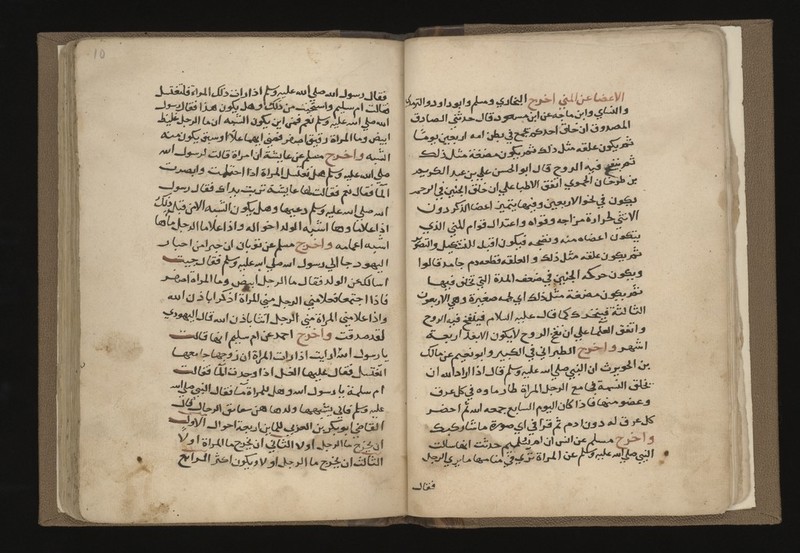 الاعضا عن المني اخرج البخاري ومسلم وابو داود والترمذي
والنساي وابن ماجه عن ابن مسعود قال حدثني الصادق
المصدوق ان خلق احدكم يجمع في بطن امه اربعين يوما
ثم يكون علقه مثل ذلك ثم يكون مضغة مثل ذلك
ثم ينفخ فيه الروح قال ابو الحسن علي بن عبد الكريم
بن طرخان الحموي اتفق الاطبا علي ان خلق الجنين في الرحم
يكون في نحو الاربعين وفيها يتميز اعضا الذكر دون
الانثي لحرارة مزاجه وقواه واعتدال قوام المني الذي
يتكون اعضاه منه ونضجه فيكون اقبل للتشكيل والتصور
ثم يكون علقه مثل ذلك والعلقه قطعه دم جامد قالوا
ويكون حركه الجنين في ضعف المدة التي يخلق فيها
ثم يكون مضغة مثل ذلك اي لحمه صغيرة وهي الاربعون
الثالثة فيتحرك كما قال عليه السلام فينفخ فيه الروح
واتفق العلما علي ان نفخ الروح لا يكون الا بعد اربعة
اشهر واخرج الطبراني في الكبير وابو نعيم عن مالك
بن الحويرث ان النبي صلي الله عليه وسلم قال اذا اراد الله ان
يخلق النسمة فجامع الرجل المراة طار ماوه في كل عرق
وعضو منها فاذا كان اليوم السابع جمعه الله ثم احضر
كل عرق له دون ادم ثم قرا في اي صورة ما شا ركبك
واخرج مسلم عن انس ان ام سليم حدثت انها سالت
النبي صلي الله عليه وسلم عن المراة تري في منامها ما يري الرجل
فقال
10
فقال رسول الله صلي الله عليه وسلم اذا رات ذلك المراة فلتغتسل
فقالت ام سليم واستحيت من ذلك وهل يكون هذا فقال رسول
الله صلي الله عليه وسلم نعم فمن اين يكون الشبه ان ما الرجل غليظ
ابيض وما المراة رقيق اصفر فمن ايهما علا او سبق يكون منه
الشبه واخرج مسلم عن عايشة ان امراة قالت لرسول الله
صلي الله عليه وسلم هل تغتسل المراة اذا احتلمت وابصرت
الما فقال نعم فقالت لها عايشة تربت يداك فقال رسول
الله صلي الله عليه وسلم دعيها وهل يكون الشبه الا من قبل ذلك
اذا علا ماوها اشبه الولد اخواله واذا علا ما الرجل ماها
اشبه اعمامه واخرج مسلم عن ثوبان ان حبرا من احبار
اليهود جا الي رسول الله صلي الله عليه وسلم فقال جيت
اسالك عن الولد فقال ما الرجل ابيض وما المراة اصفر
فاذا اجتمعا فعلا مني الرجل مني المراة اذكرا باذن الله
واذا علا مني المراة مني الرجل انثا باذن الله قال اليهودي
لقد صدقت واخرج احمد عن ام سليم انها قالت
يا رسول الله ارايت اذا رات المراة ان زوجها جامعها
اتغتسل فقال عليها الغسل اذا وجدت الما فقالت
ام سلمة يا رسول الله وهل للمراة ما فقال النبي صلي الله
عليه وسلم فاني يشبهها ولدها هن شقايق الرجال قال
القاضي ابو بكر بن العربي للماين اربعة احوال الاول
ان يخرج ما الرجل اولا الثاني ان يخرج ما المراة اولا
الثالث ان يخرج ما الرجل اولا ويكون اكثر الرابع